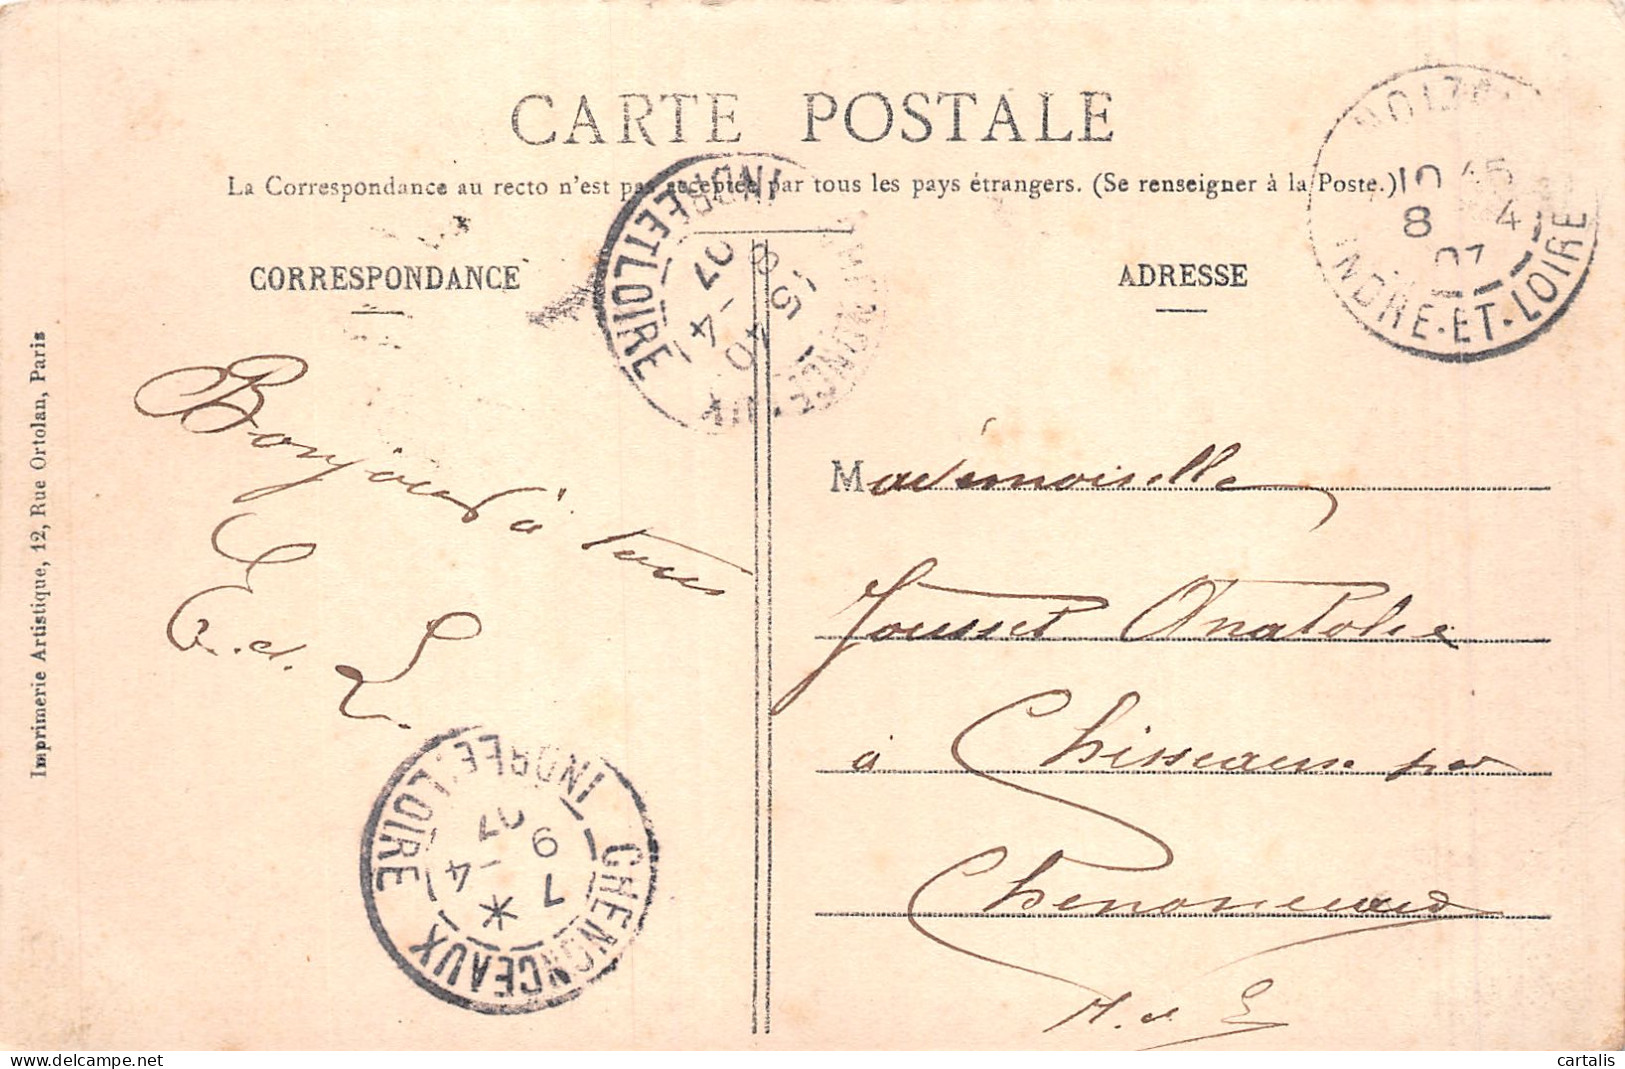 CARTE POSTALE
La Correspondance au recto n'est pas acceptée par tous les pays étrangers. (Se renseigner à la Poste.)
CORRESPONDANCE
ADRESSE
Imprimerie Artistique, 12, Rue Ortolan, Paris
Bonjour à
tous
E. d. L.
Mademoiselle
Jousset Anatolie
à Chisseaux par
Chenonceaux
INDRE-ET-LOIRE
10 45
8 4
07
INDRE ET LOIRE
15 40
8 -4
07
CHENONCEAUX
INDRE ET LOIRE
7 *
9 -4
07
cartalis